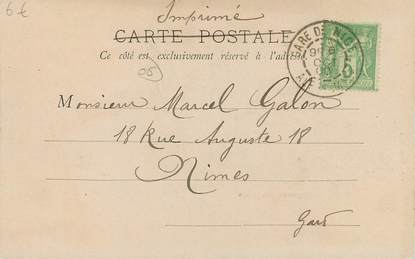 6€
Imprimé
CARTE POSTALE
Ce côté est exclusivement réservé à l'adresse
06
GARE DE NICE
5
Monsieur Marcel Galon
18 Rue Auguste 18
Nimes
Gard